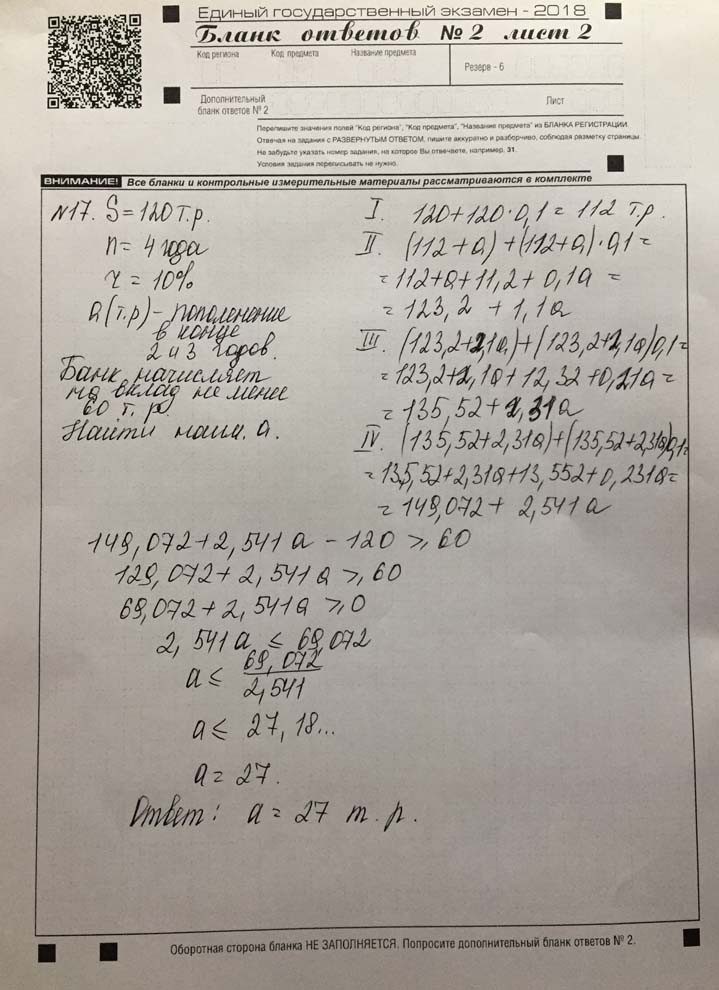 Единый государственный экзамен - 2018
Бланк ответов № 2 лист 2
Код региона Код предмета Название предмета
Резерв - 6
Дополнительный
бланк ответов № 2
Лист
Перепишите значения полей "Код региона", "Код предмета", "Название предмета" из БЛАНКА РЕГИСТРАЦИИ.
Отвечая на задания с РАЗВЕРНУТЫМ ОТВЕТОМ, пишите аккуратно и разборчиво, соблюдая разметку страницы.
Не забудьте указать номер задания, на которое Вы отвечаете, например, 31.
Условия задания переписывать не нужно.
ВНИМАНИЕ! Все бланки и контрольные измерительные материалы рассматриваются в комплекте
№17. S = 120 т.р.
n = 4 года
r = 10%
a (т.р) - пополнение
в конце
2 и 3 годов.
Банк начисляет
на вклад не менее
60 т. р.
Найти наим. a.
I. 120 + 120 · 0,1 = 112 т.р.
II. (112 + a) + (112 + a) · 0,1 =
= 112 + a + 11,2 + 0,1a =
= 123,2 + 1,1a
III. (123,2 + 2,1a) + (123,2 + 2,1a) 0,1 =
= 123,2 + 2,1a + 12,32 + 0,21a =
= 135,52 + 2,31a
IV. (135,52 + 2,31a) + (135,52 + 2,31a) 0,1 =
= 135,52 + 2,31a + 13,552 + 0,231a =
= 149,072 + 2,541a
149,072 + 2,541a - 120 ⩾ 60
129,072 + 2,541a ⩾ 60
69,072 + 2,541a ⩾ 0
2,541a ⩽ 69,072
a ⩽ 69,072 / 2,541
a ⩽ 27,18...
a = 27.
Ответ: a = 27 т.р.
Оборотная сторона бланка НЕ ЗАПОЛНЯЕТСЯ. Попросите дополнительный бланк ответов № 2.